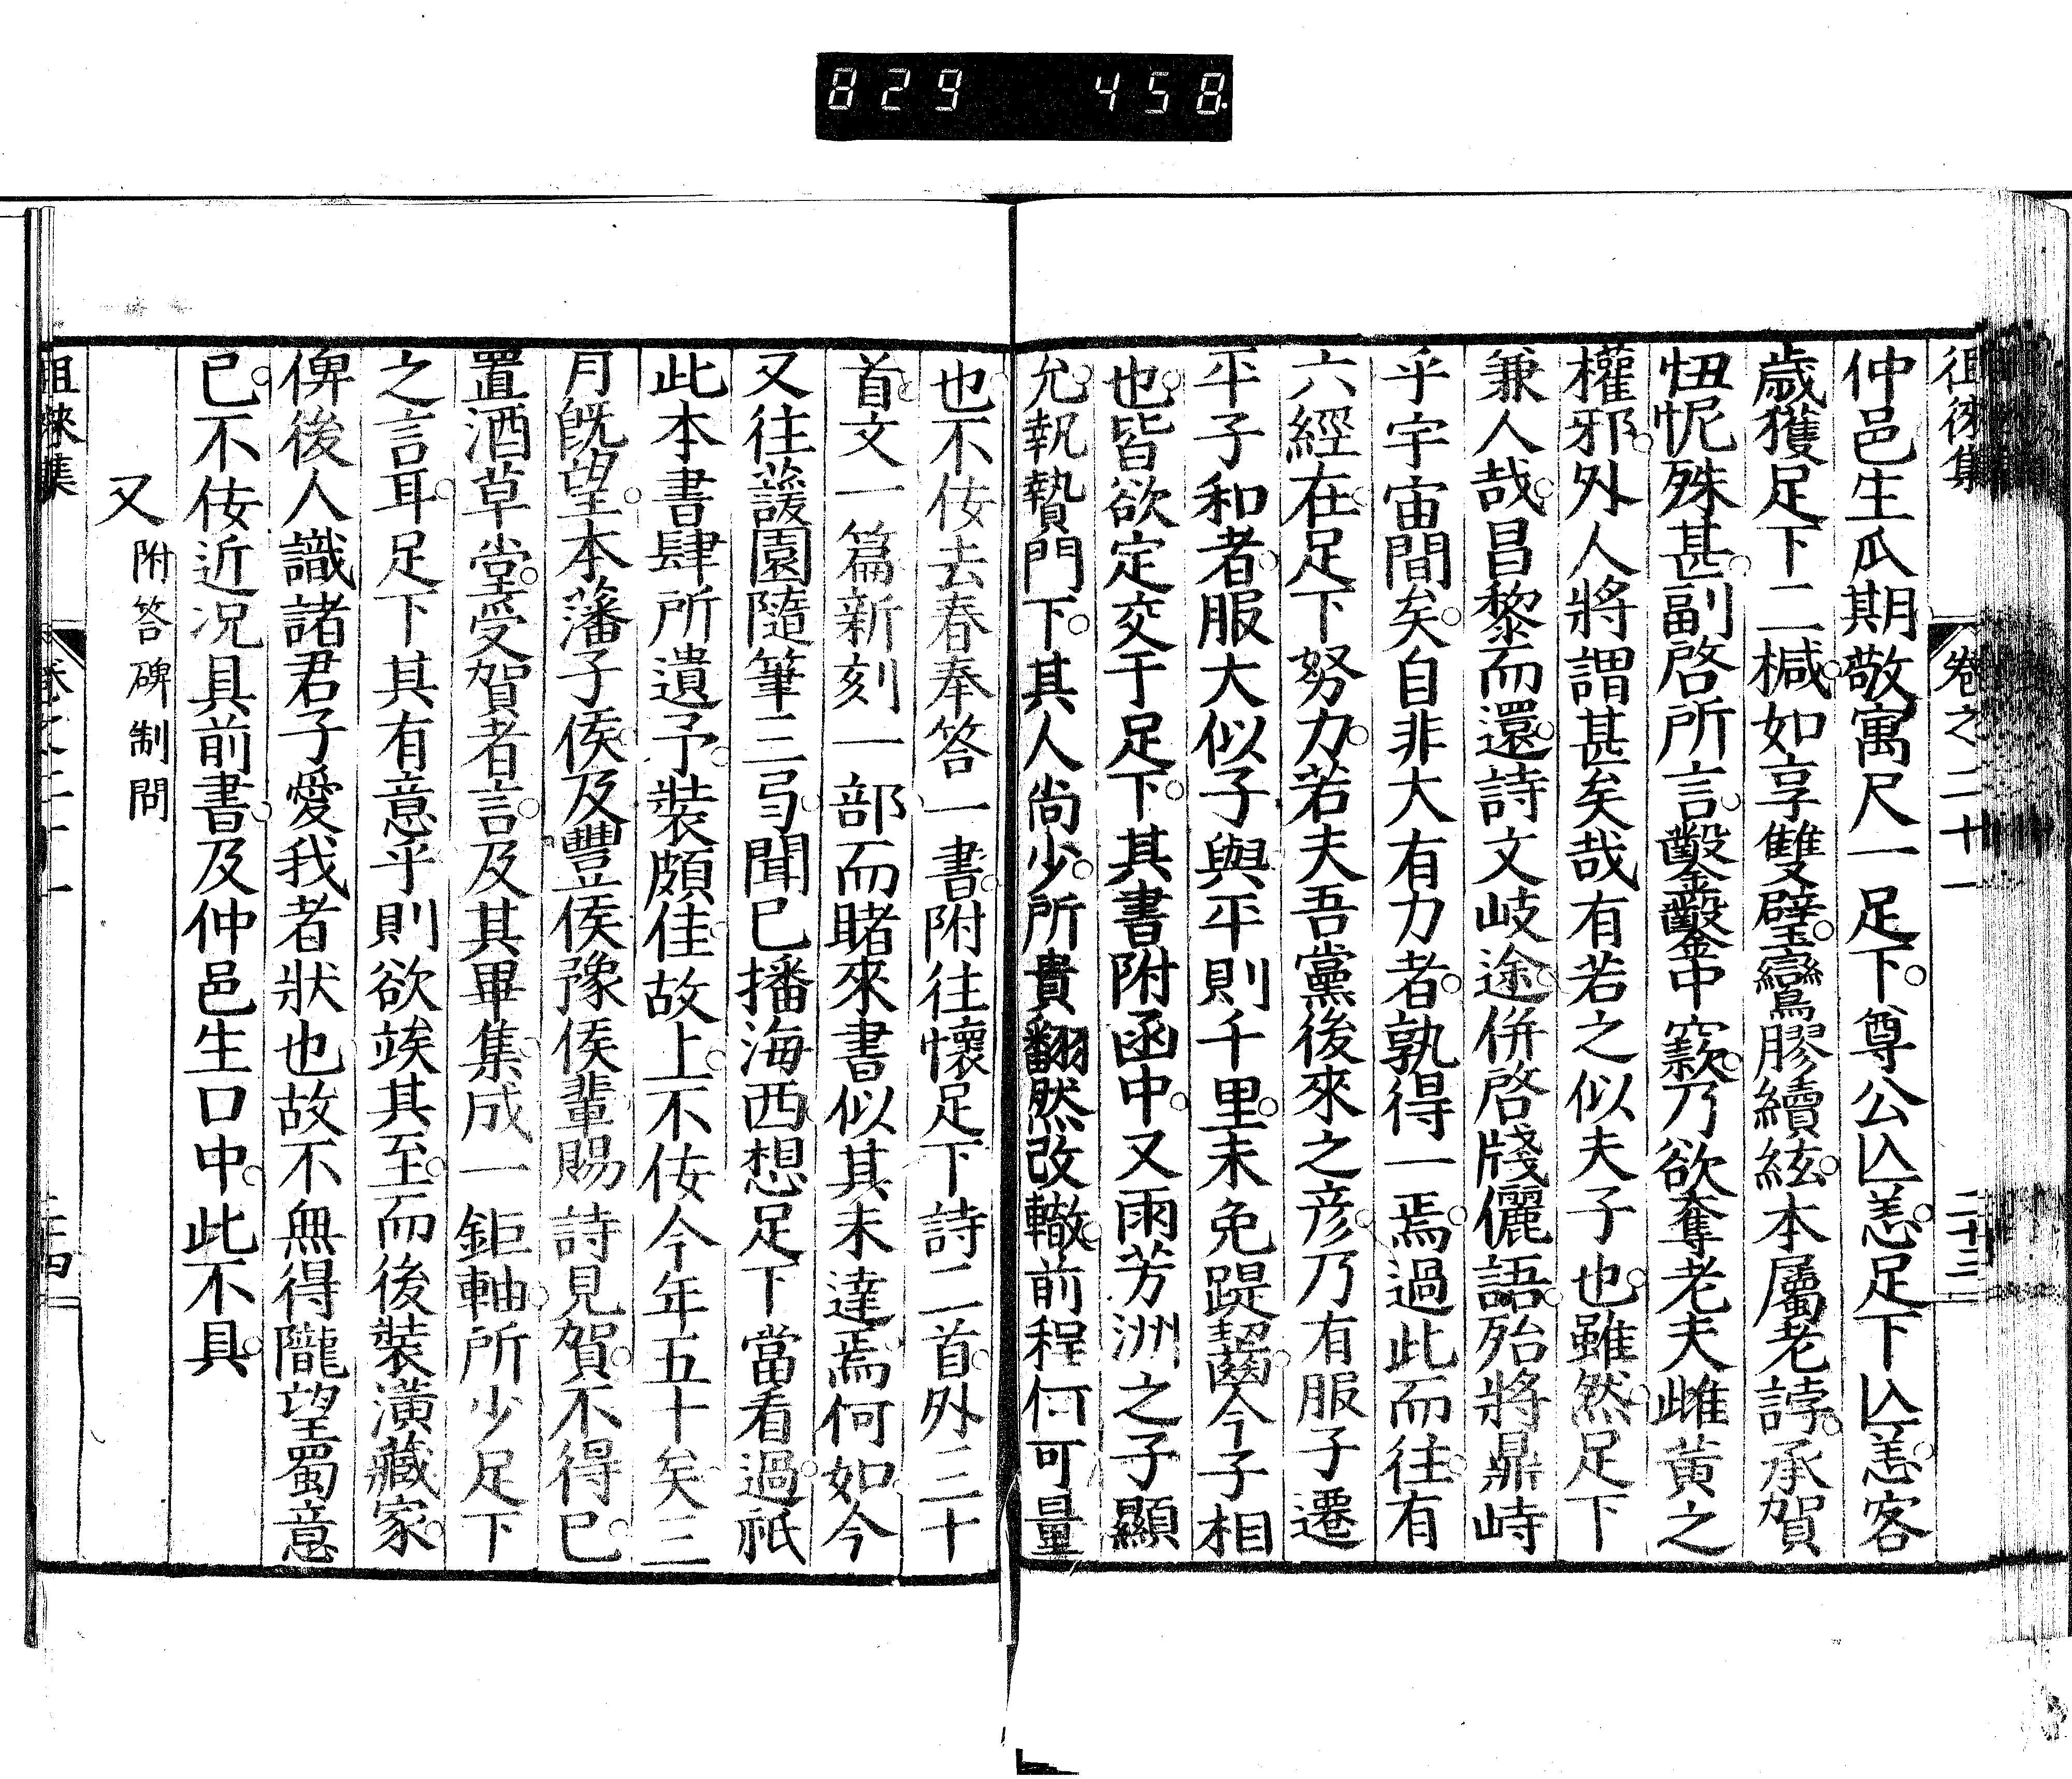 829 458
徂徠集 卷之二十一 二十三
仲邑生瓜期敬寓尺一足下尊公亾恙足下亾恙客
歲獲足下二椷如享雙璧鸞膠續絃本屬老誖承賀
忸怩殊甚副啓所言鑿鑿中窾乃欲奪老夫雌黃之
權邪外人將謂甚矣哉有若之似夫子也雖然足下
兼人哉昌黎而還詩文岐途併啓牋儷語殆將鼎峙
乎宇宙間矣自非大有力者孰得一焉過此而往有
六經在足下努力若夫吾黨後來之彥乃有服子遷
平子和者服大似子與平則千里未免踶齧今子相
也皆欲定交于足下其書附函中又雨芳洲之子顯
允執贄門下其人尚少所貴翻然改轍前程何可量
也不佞去春奉答一書附往懷足下詩二首外二十
首文一篇新刻一部而睹來書似其未達焉何如今
又往蘐園隨筆三弓聞已播海西想足下當看過祇
此本書肆所遺予裝頗佳故上不佞今年五十矣三
月旣望本藩子侯及豐侯豫侯輩賜詩見賀不得已
置酒草堂受賀者言及其畢集成一鉅軸所少足下
之言耳足下其有意乎則欲竢其至而後裝潢藏家
俾後人識諸君子愛我者狀也故不無得隴望蜀意
已不佞近况具前書及仲邑生口中此不具
又 附答碑制問
徂徠集 卷之二十一 二十四